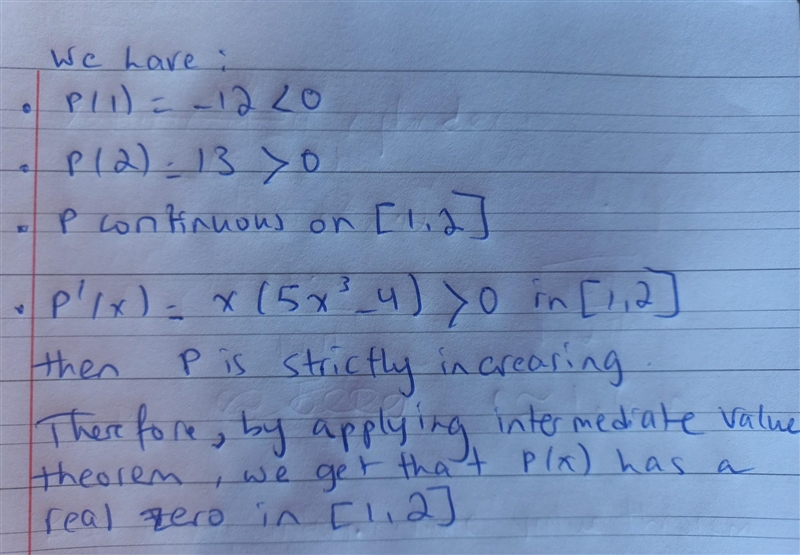 We have:
• P(1) = -12 < 0
• P(2) = 13 > 0
• P continuous on [1,2]
• P'(x) = x(5x³-4) > 0 in [1,2]
then P is strictly increasing.
Therefore, by applying intermediate value
theorem, we get that P(x) has a
real zero in [1,2]